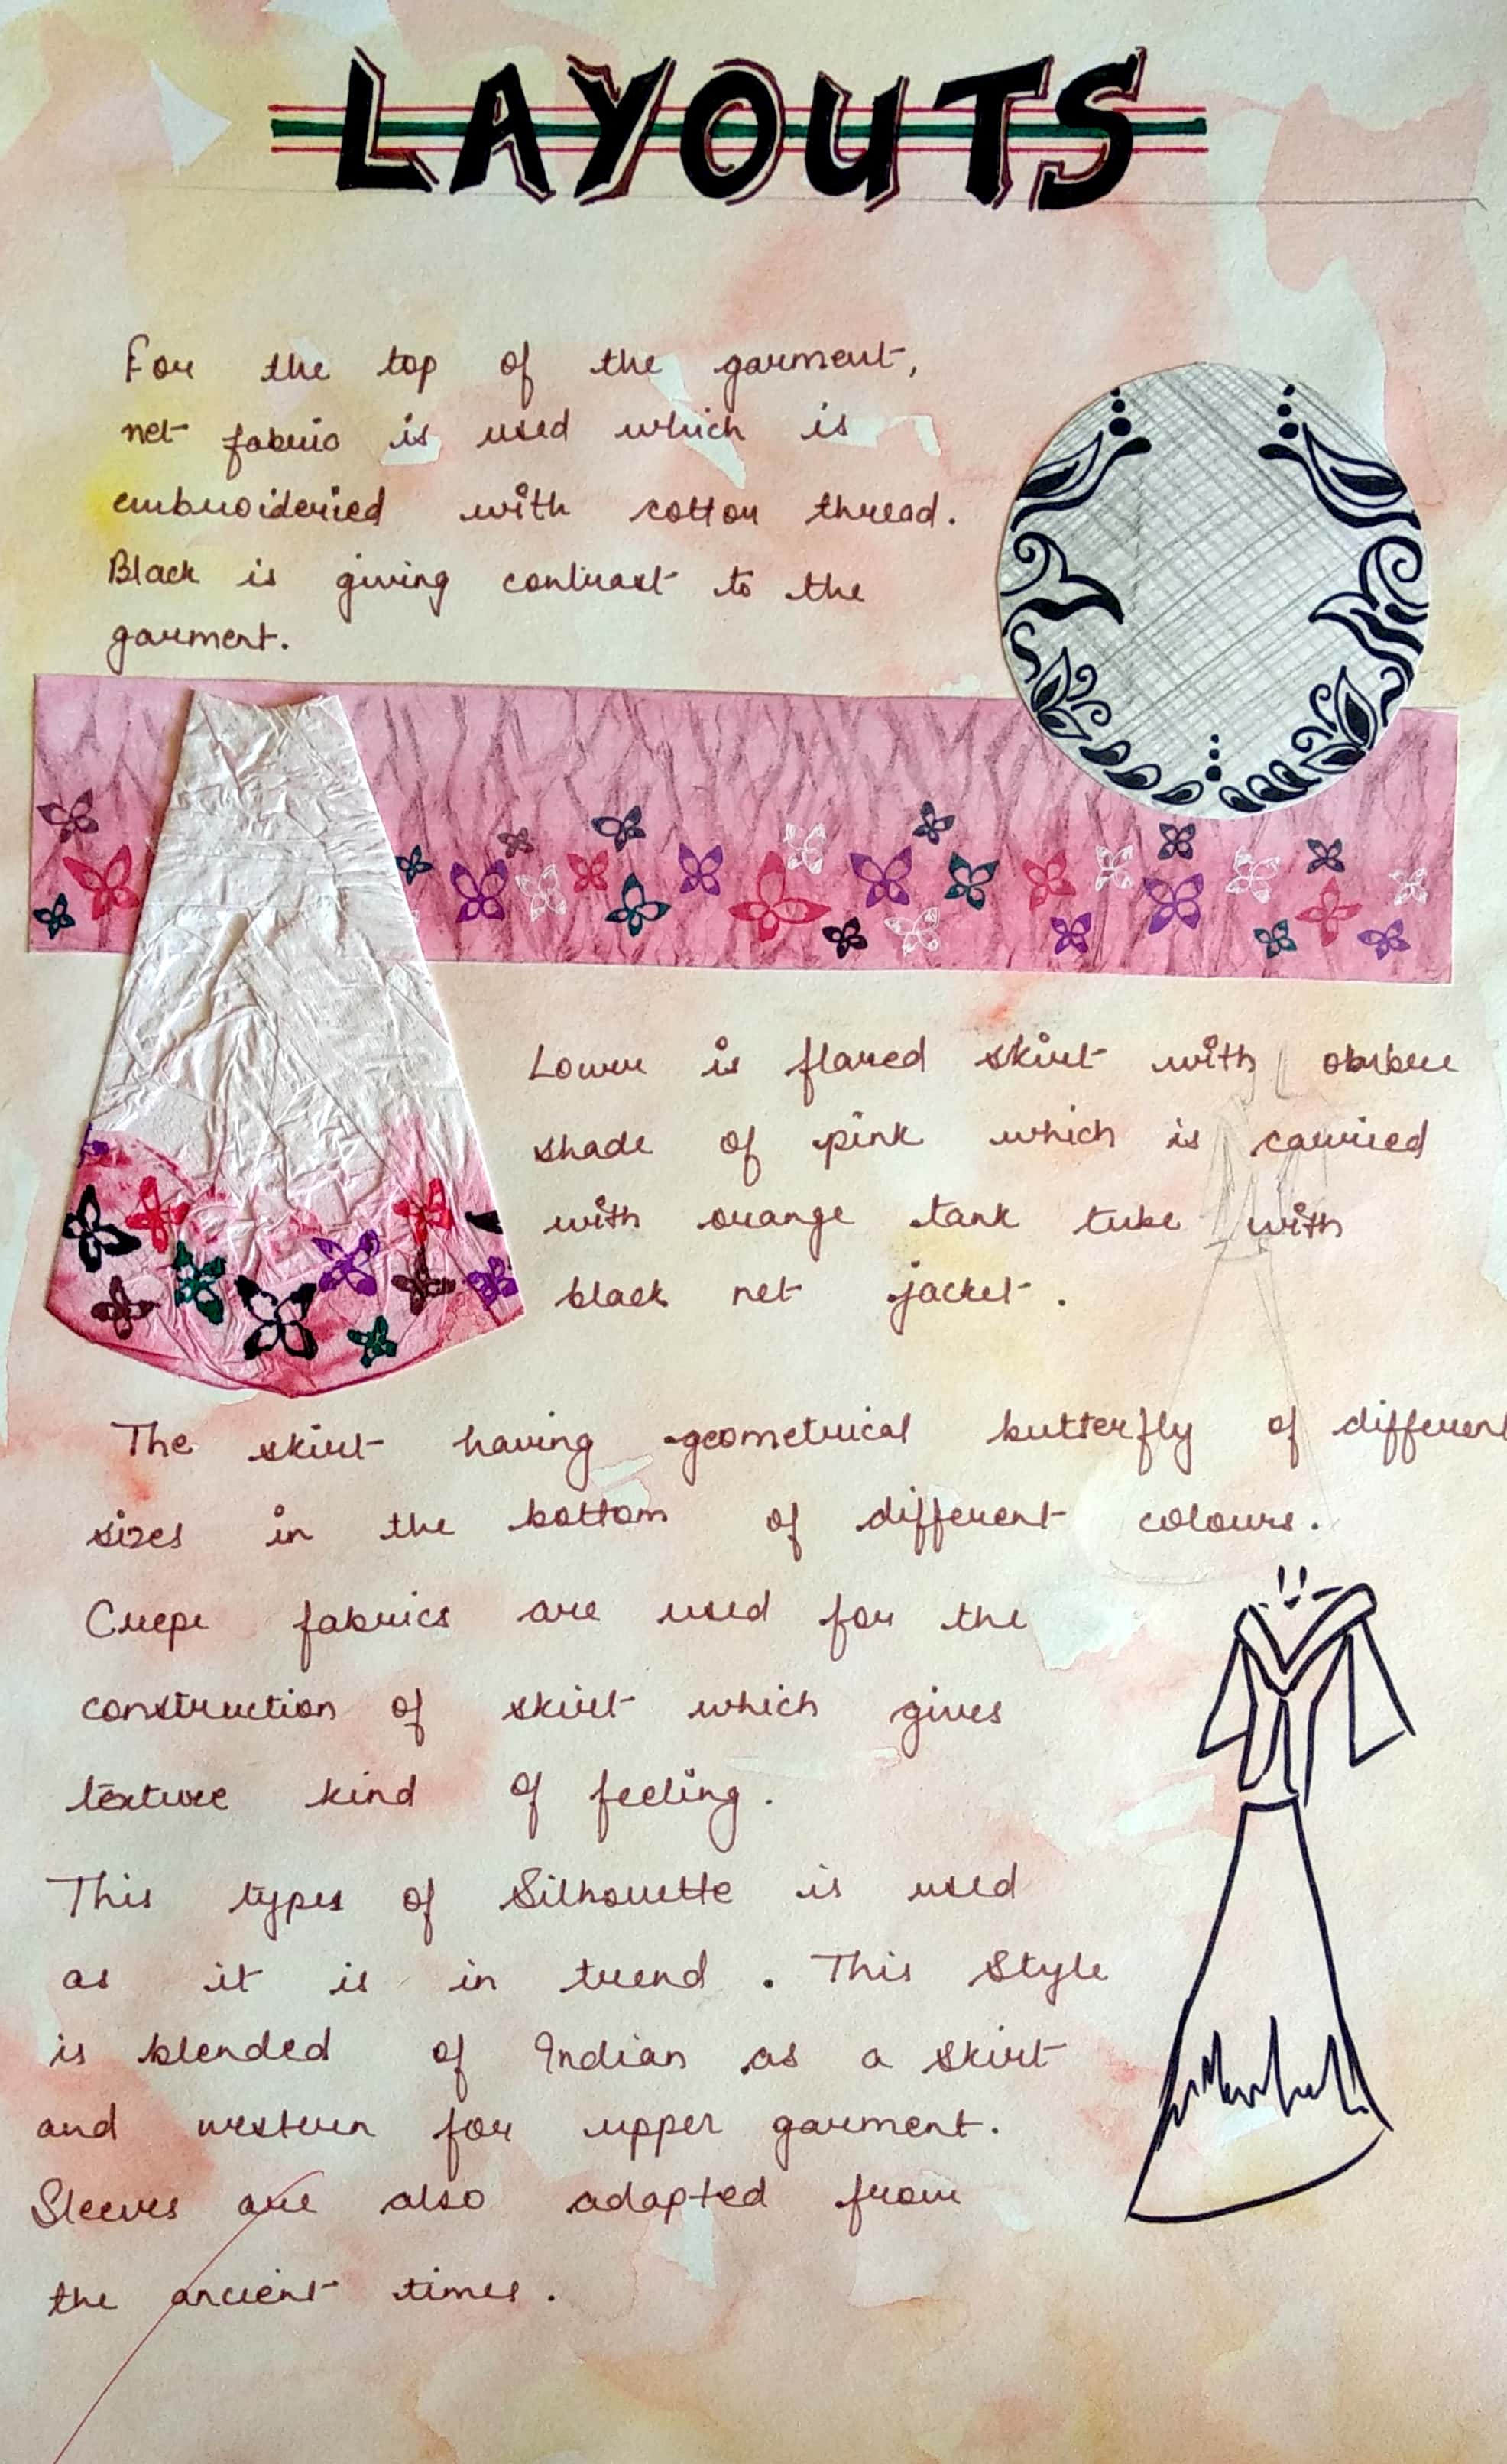 LAYOUTS
For the top of the garment,
net fabric is used which is
embroideried with cotton thread.
Black is giving contrast to the
garment.
Lower is flared skirt with ombre
shade of pink which is carried
with orange tank tube with
black net jacket.
The skirt having geometrical butterfly of different
sizes in the bottom of different colours.
Crepe fabrics are used for the
construction of skirt which gives
texture kind of feeling.
This types of Silhouette is used
as it is in trend. This Style
is blended of Indian as a skirt
and western for upper garment.
Sleeves are also adapted from
the ancient times.